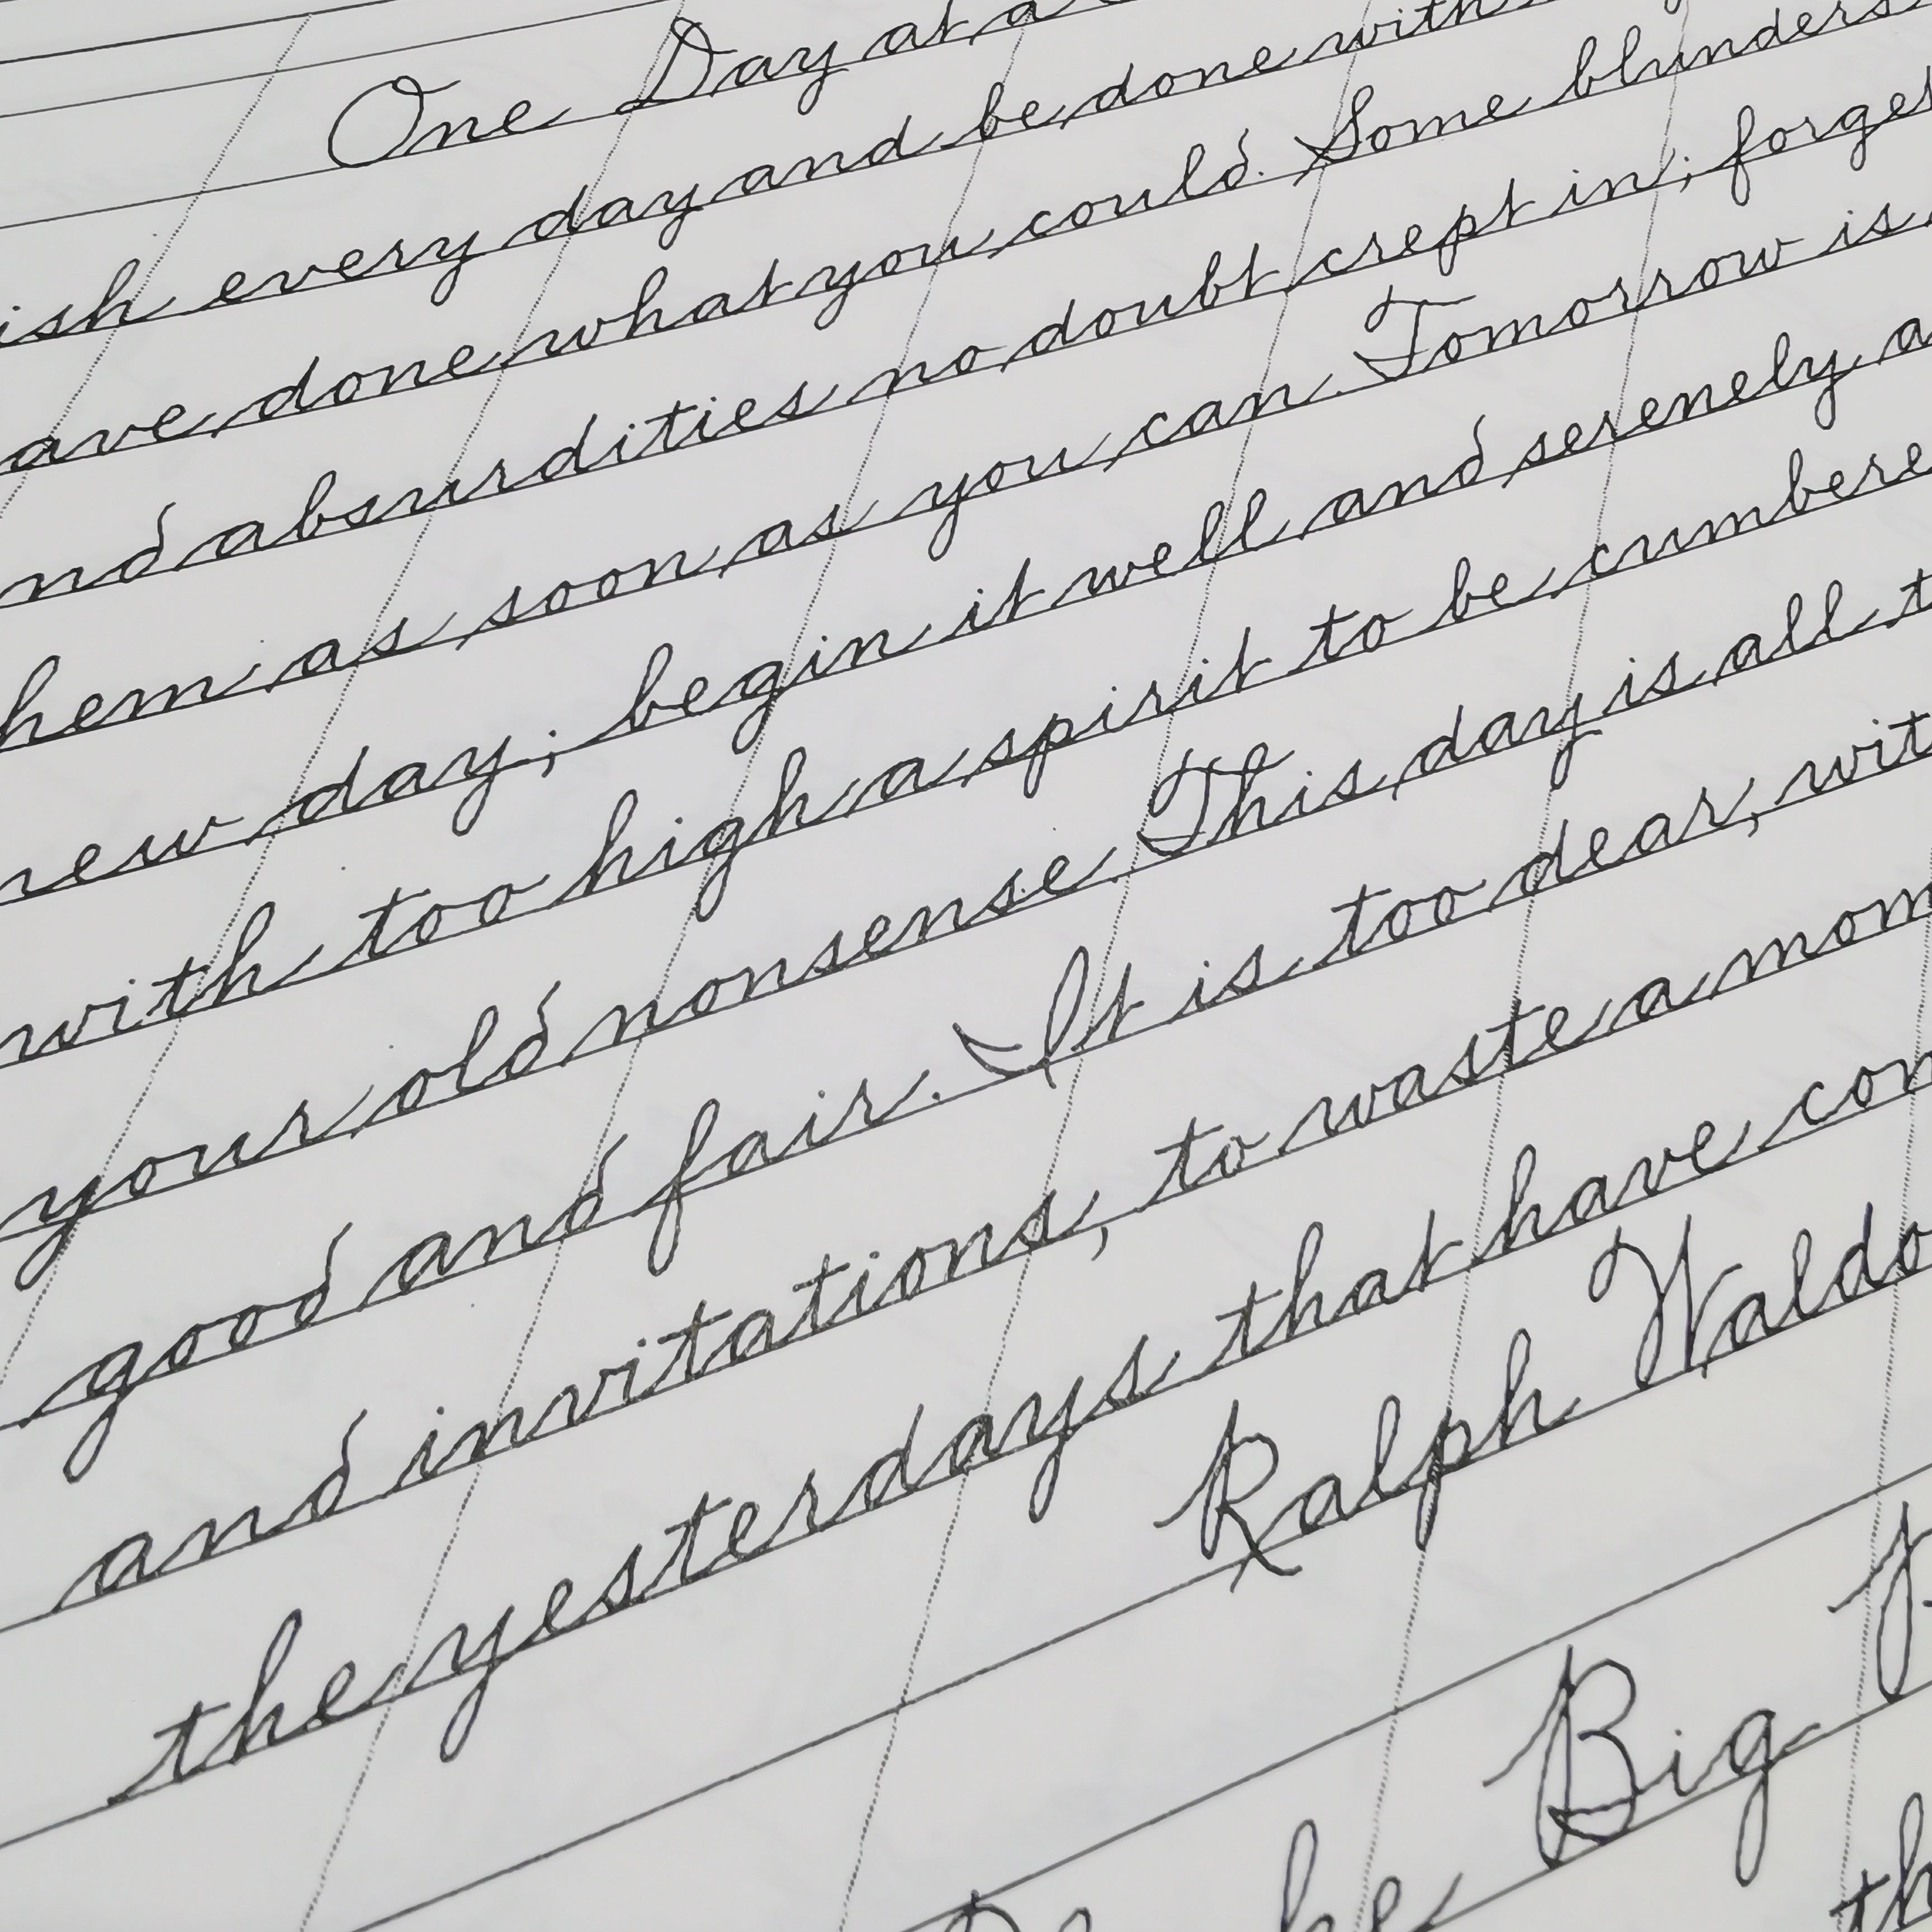 One Day at a
ish every day and be done with
ave done what you could. Some blunders
nd absurdities no doubt crept in; forge
hem as soon as you can. Tomorrow is
new day; begin it well and serenely a
with too high a spirit to be cumbere
your old nonsense. This day is all t
good and fair. It is too dear, wit
and invitations, to waste a mom
the yesterdays that have con
Ralph Waldo
Big
he th